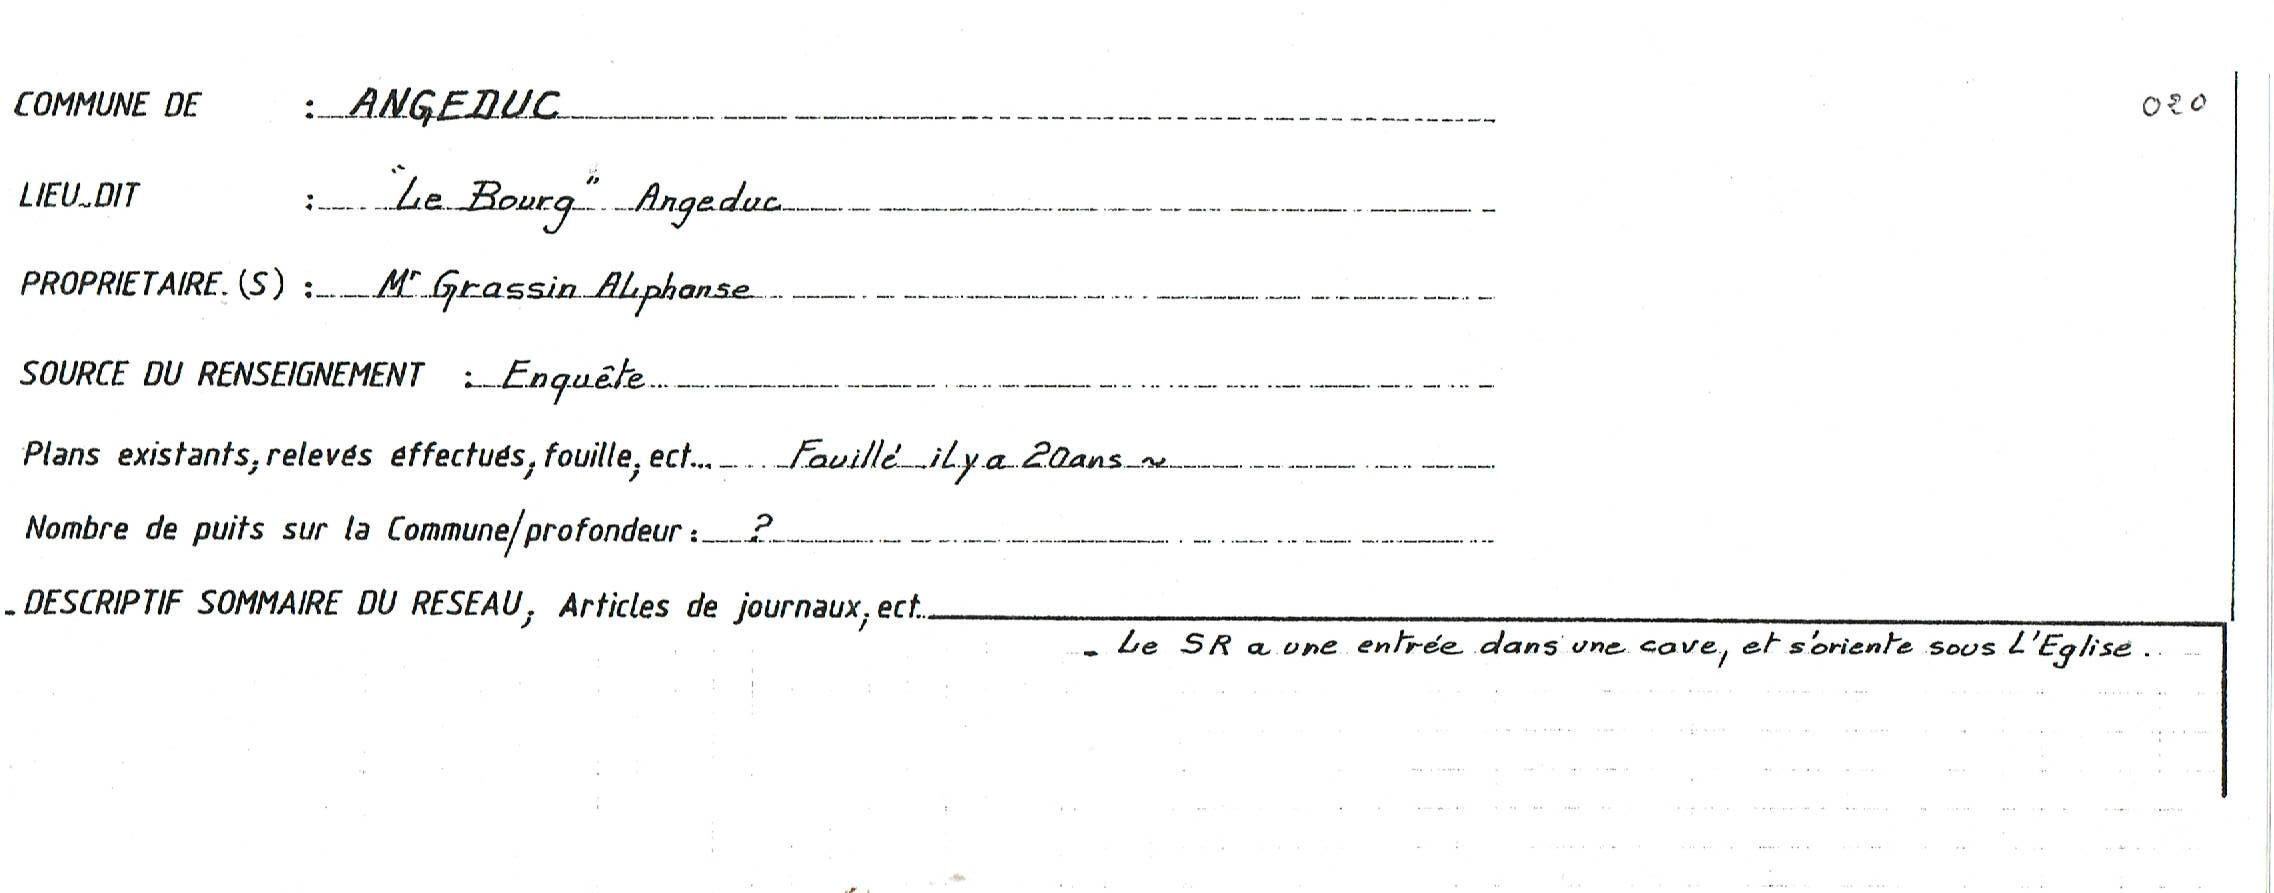 COMMUNE DE : ANGEDUC 020
LIEU-DIT : "Le Bourg" Angeduc
PROPRIETAIRE.(S) : Mr Grassin ALphonse
SOURCE DU RENSEIGNEMENT : Enquête
Plans existants, relevés effectués, fouille, ect... Fouillé il y a 20ans ~
Nombre de puits sur la Commune/profondeur : ?
- DESCRIPTIF SOMMAIRE DU RESEAU, Articles de journaux, ect..
- Le SR a une entrée dans une cave, et s'oriente sous L'Eglise.